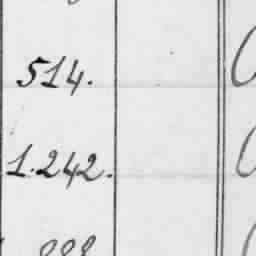 514.
1.242.